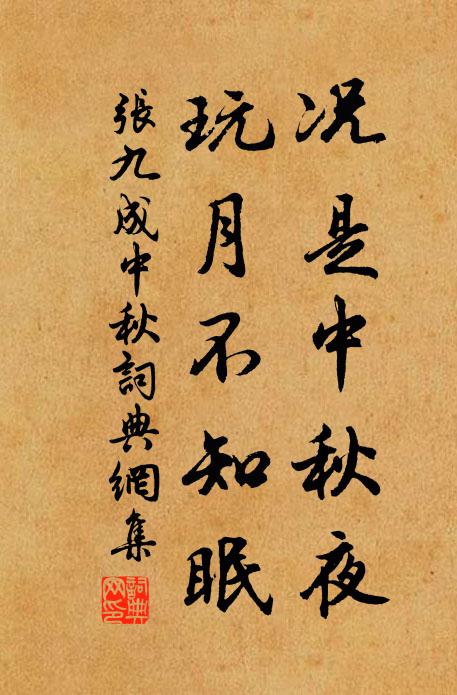 况是中秋夜
玩月不知眠
張九成中秋詞典網集
詞典網印